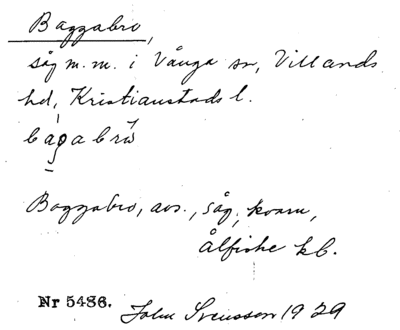 Baggabro,
såg m.m. i Vånga sn, Villands
hd, Kristianstads l.
Baggabro, avs., såg, kvarn,
ålfiske kb.
Nr 5486. John Svensson 1929